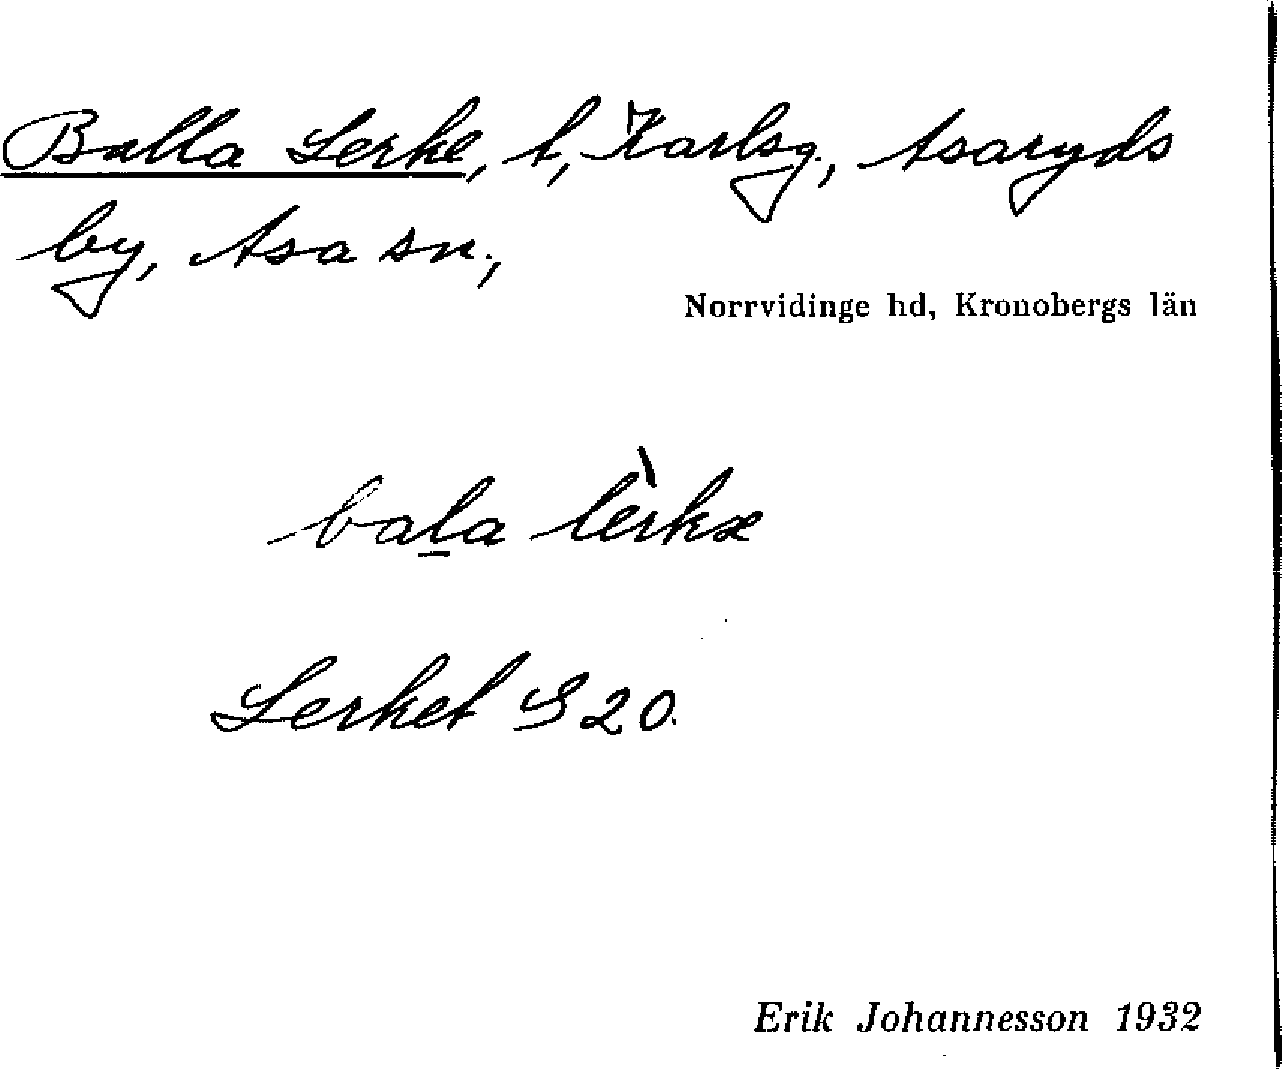 Balla Lerke, t, Karlsg., Asaryds
by, Asa sn.,
Norrvidinge hd, Kronobergs län
bala lèrkæ
Lerket S 20.
Erik Johannesson 1932